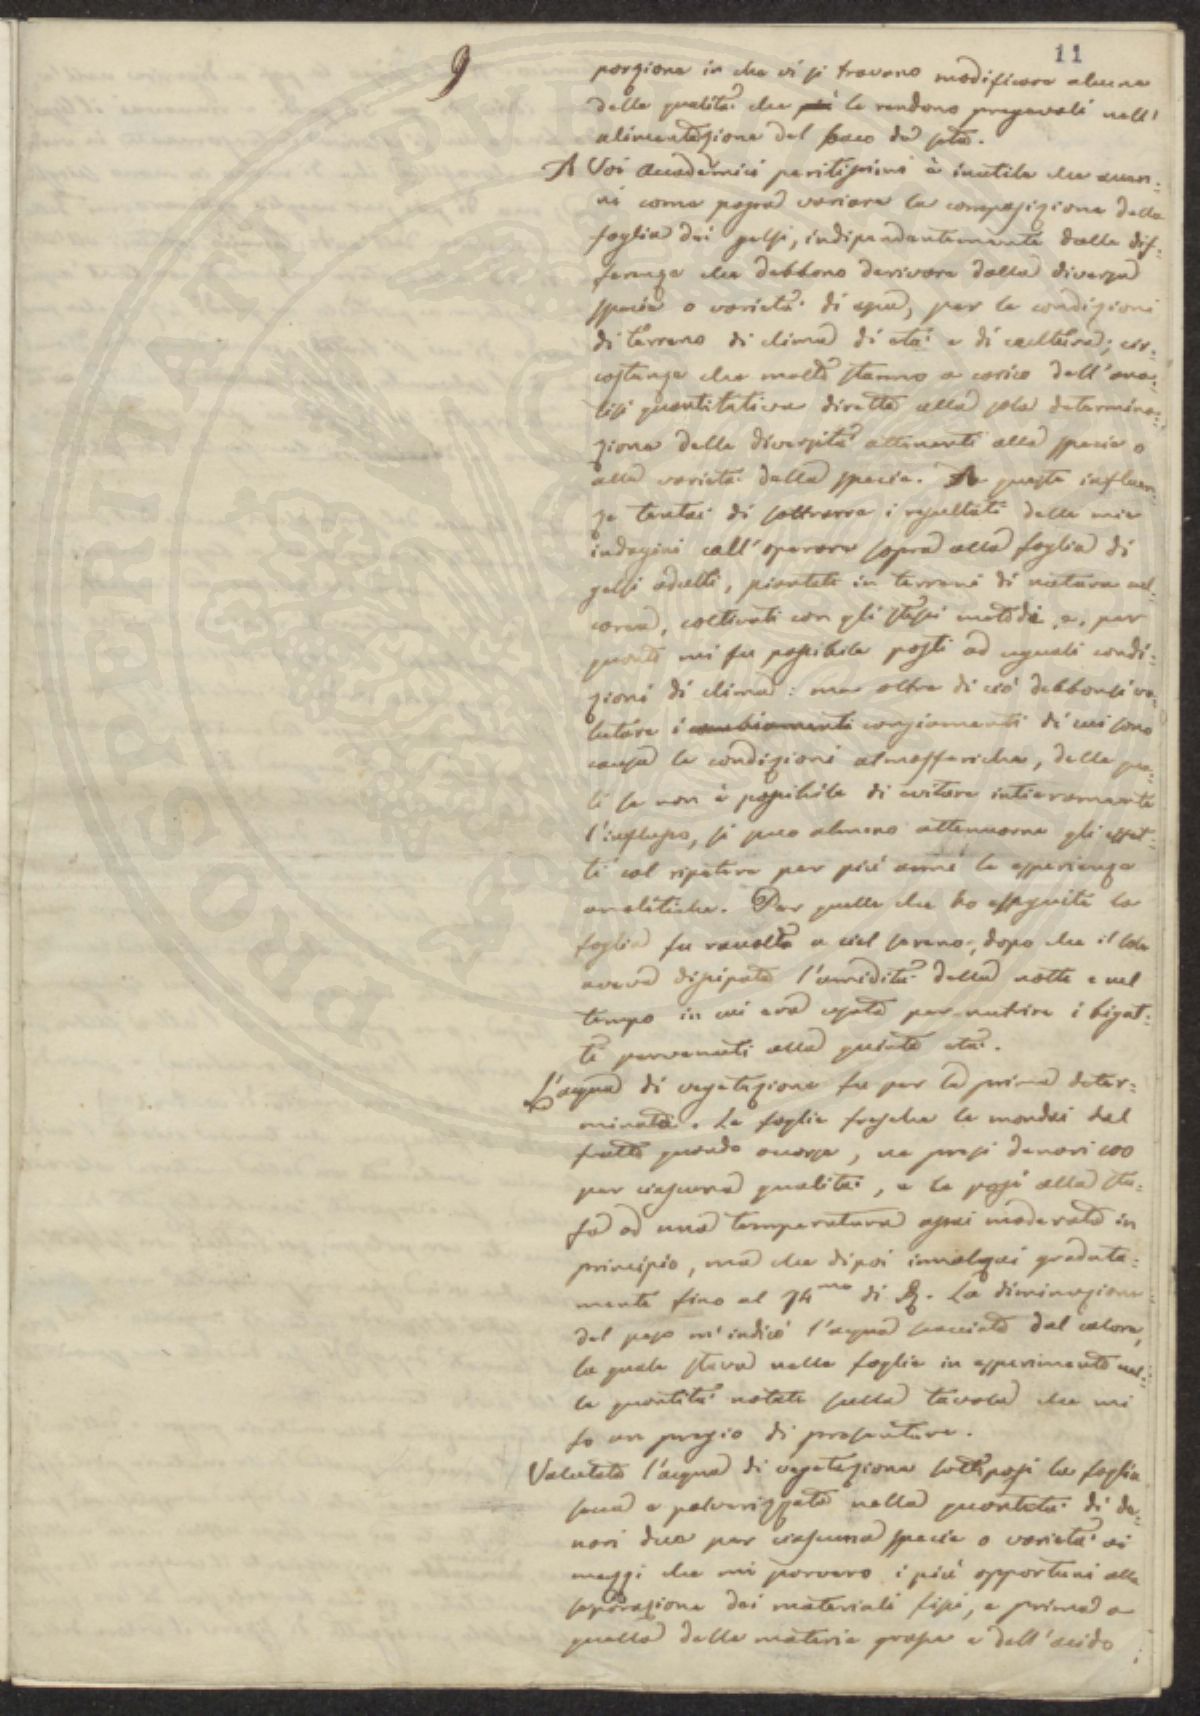 9
11
porzione in che vi si trovano modificare alcune
delle qualità che più le rendono pregevoli nell'
alimentazione del baco da seta.
A Voi Accademici peritissimi è inutile che accen-
ni come possa variare la composizione della
foglia dei gelsi, indipendentemente dalle dif-
ferenze che debbono derivare dalla diversa
specie o varietà di essa, per le condizioni
di terreno di clima di età e di cultura; cir-
costanze che molto stanno a carico dell'ana-
lisi quantitativa diretta alla sola determina-
zione delle diversità attinenti alla specie o
alla varietà della specie. A queste influen-
ze tentai di sottrarre i resultati delle mie
indagini coll'operare sopra alla foglia di
gelsi adulti, piantati in terreni di natura cal-
carea, coltivati con gli stessi metodi, e, per
quanto mi fu possibile posti ad uguali condi-
zioni di clima: ma oltre di ciò debbonsi va-
lutare i cambiamenti cangiamenti di cui sono
causa le condizioni atmosferiche, delle qua-
li se non è possibile di evitare intieramente
l'influsso, si può almeno attenuarne gli effet-
ti col ripetere per più anni le esperienze
analitiche. Per quelle che ho eseguite la
foglia fu raccolta a ciel sereno, dopo che il sole
aveva dissipato l'umidità della notte e nel
tempo in cui era usata per nutrire i bigat-
ti pervenuti alla quinta età.
L'acqua di vegetazione fu per la prima deter-
minata. Le foglie fresche le mondai dal
frutto quando occorse, ne presi denari 100
per ciascuna qualità, e le posi alla stu-
fa ad una temperatura assai moderata in
principio, ma che dipoi innalzai gradata-
mente fino al 74mo di R. La diminuzione
del peso m'indicò l'acqua scacciata dal calore,
la quale stava nelle foglie in esperimento nel-
le quantità notate sulla tavola che mi
fo un pregio di presentare.
Valutata l'acqua di vegetazione sottoposi la foglia
secca e polverizzata nella quantità di de-
nari due per ciascuna specie o varietà ai
mezzi che mi parvero i più opportuni alla
separazione dei materiali fissi, e prima a
quella delle materie grasse e dell'acido